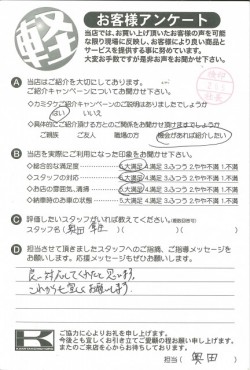 軽
お客様アンケート
当店では、お買い上げ頂いたお客様の声を可能
な限り現場に反映し、お客様により良い商品と
サービスを提供する事に努めています。
大変お手数ですが是非お声をお聞かせ下さい。
A 当店はご紹介を大切にしております。
ご紹介キャンペーンについてお聞かせ下さい
◇カミタケご紹介キャンペーンのご説明はありましたでしょうか
はい いいえ
◇具体的にご紹介頂ける方とのご関係をお聞かせ頂けますでしょうか
ご親族 ご友人 職場の方 機会があれば紹介したい
B 当店を実際にご利用になった印象をお聞かせ下さい。
◇総合的な満足度 5.大満足 4.満足 3.ふつう 2.やや不満 1.不満
◇スタッフの対応 5.大満足 4.満足 3.ふつう 2.やや不満 1.不満
◇お店の雰囲気、清掃 5.大満足 4.満足 3.ふつう 2.やや不満 1.不満
◇納車時のお車の状態 5.大満足 4.満足 3.ふつう 2.やや不満 1.不満
C 評価したいスタッフがいれば教えてください。(複数回答可)
スタッフ名( 奥田
D 担当させて頂きましたスタッフへのご指摘、ご指導メッセージを
お願いします。応援メッセージもぜひお願いします。
良い対応してくれたと思います。
これからも宜しくお願いします。
K
ご協力に心よりお礼を申し上げます。
今後とも宜しくお引き立てご愛顧の程お願い申し上げます。
またのご来店を心からお待ちしております。
担当( 奥田 )